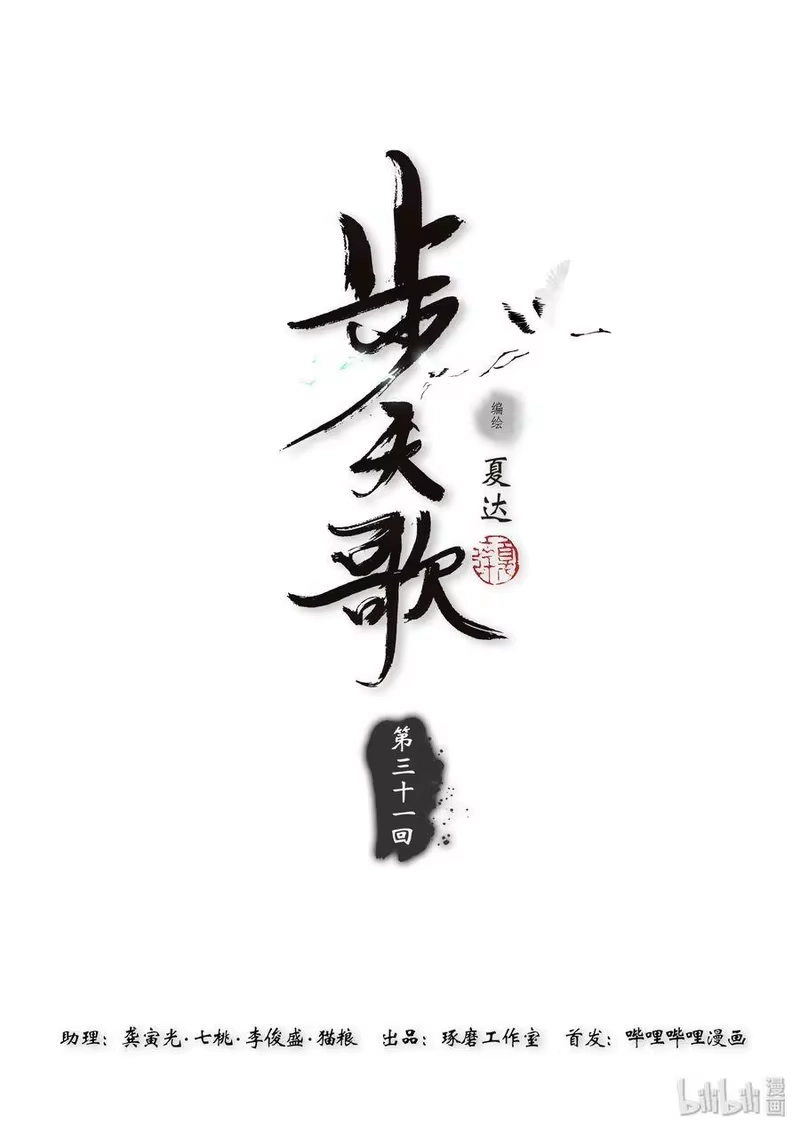 步天歌
编绘
夏达
第三十一回
助理：龚寅光·七桃·李俊盛·猫粮 出品：琢磨工作室 首发：哔哩哔哩漫画
bilibili 漫画